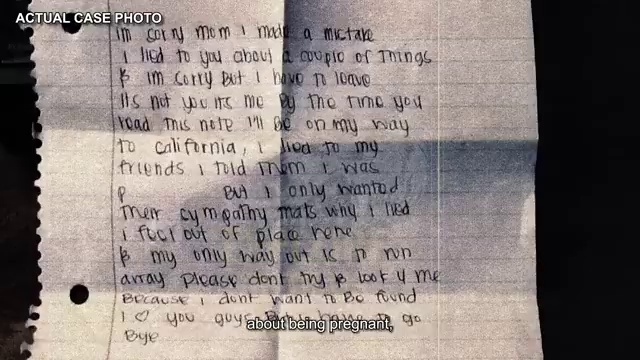 ACTUAL CASE PHOTO
Im sorry mom I made a mistake
I lied to you about a couple of things
& im sorry But I have to leave
its not you its me By the time you
read this note I'll Be on my way
to california, I lied to my
friends I told them I was
p But I only wanted
Their cympathy thats why I lied
I feel out of place here
& my only way out is to run
array please dont try & look 4 me
Because I dont want to Be found
I ♡ you guys But I have to go
Bye
about being pregnant,